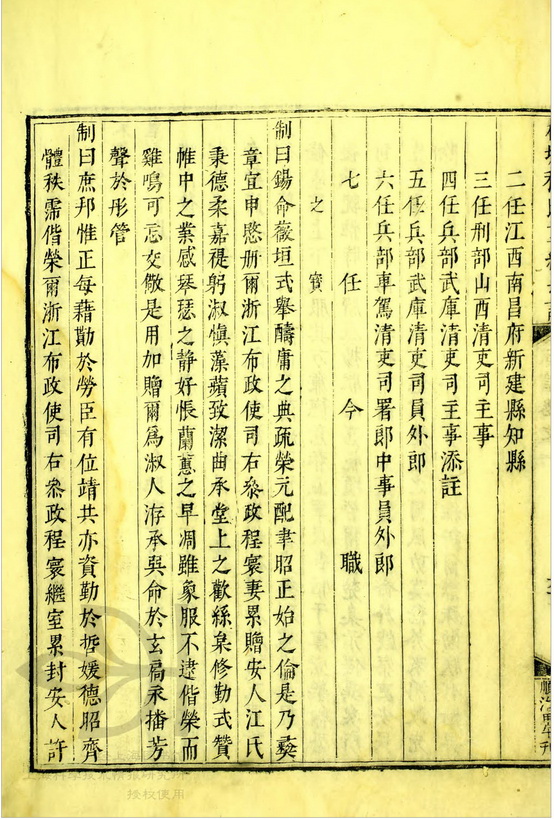 二任江西南昌府新建縣知縣
三任刑部山西清吏司主事
四任兵部武庫清吏司主事添註
五任兵部武庫清吏司員外郎
六任兵部車駕清吏司署郎中事員外郎
七任今職
之寶
制曰錫命薇垣式舉疇庸之典疏榮元配聿昭正始之倫是乃彝
章宜申愍册爾浙江布政使司右叅政程寰妻累贈安人江氏
秉德柔嘉禔躬淑慎藻蘋致潔曲承堂上之歡絲枲修勤式贊
帷中之業感琴瑟之静好悵蘭蕙之早凋雖象服不逮偕榮而
雞鳴可忘交儆是用加贈爾爲淑人洊承奭命於玄扃永播芳
聲於彤管
制曰庶邦惟正每藉勤於勞臣有位靖共亦資勤於哲媛德昭齊
體秩需偕榮爾浙江布政使司右叅政程寰繼室累封安人許
授校使用